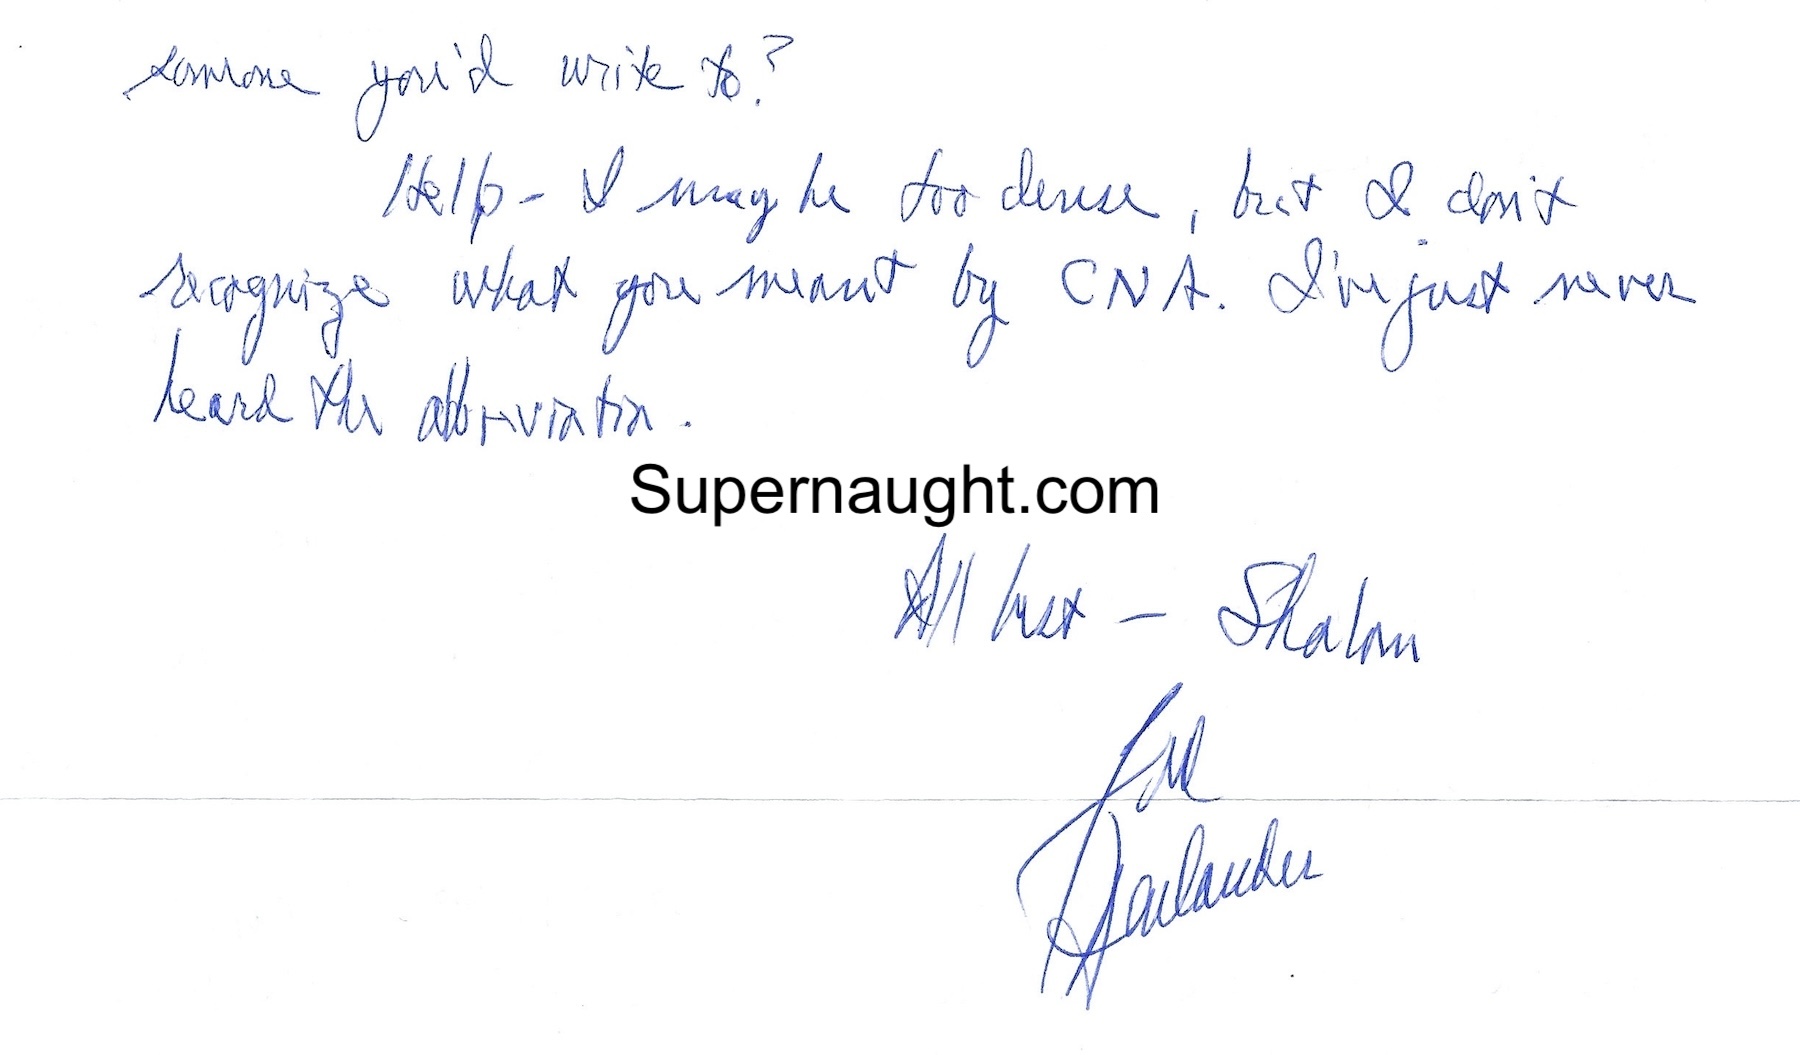 someone you'd write to?
Help - I may be too dense, but I don't
recognize what you meant by CNA. I've just never
heard the abbreviation.
Supernaught.com
All best - Shalom